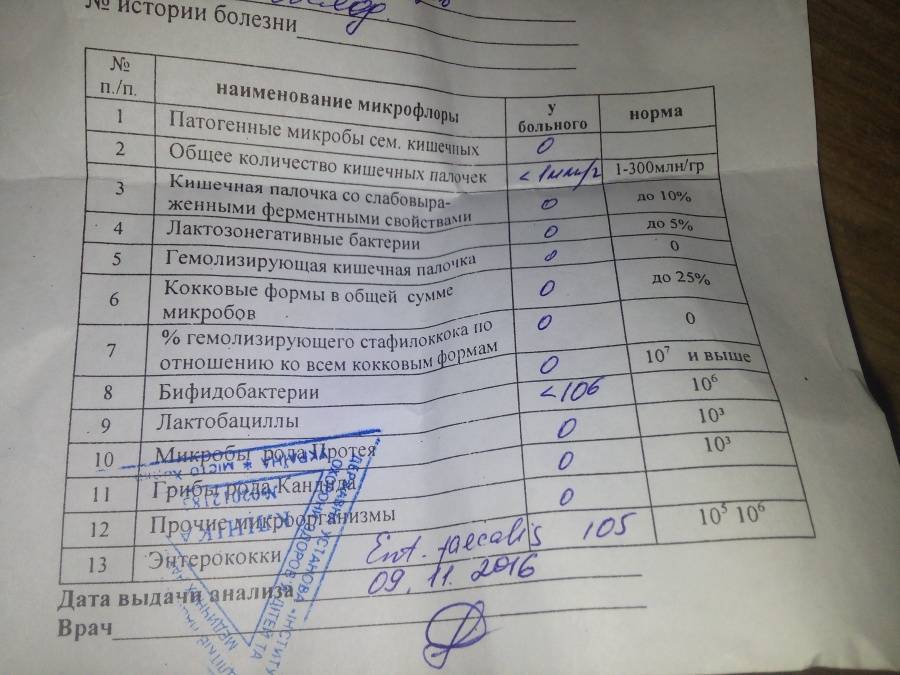 № истории болезни
№ п./п. наименование микрофлоры у больного норма
1 Патогенные микробы сем. кишечных 0
2 Общее количество кишечных палочек <1млн/г 1-300млн/гр
3 Кишечная палочка со слабовыра-
женными ферментными свойствами 0 до 10%
4 Лактозонегативные бактерии 0 до 5%
5 Гемолизирующая кишечная палочка 0 0
6 Кокковые формы в общей сумме
микробов 0 до 25%
7 % гемолизирующего стафилоккока по
отношению ко всем кокковым формам 0 0
8 Бифидобактерии 0 10⁷ и выше
9 Лактобациллы <106 10⁶
10 Микробы рода Протея 0 10³
11 Грибы рода Кандида 0 10³
12 Прочие микроорганизмы 0
13 Энтерококки Ent. faecalis 105 10⁵ 10⁶
Дата выдачи анализа 09.11.2016
Врач
УКРАЇНА * МІСТО
КЛІНІКА
ДЕРЖАВНА УСТАНОВА
ОХОРОНИ ЗДОРОВ'Я ДІТЕЙ ТА